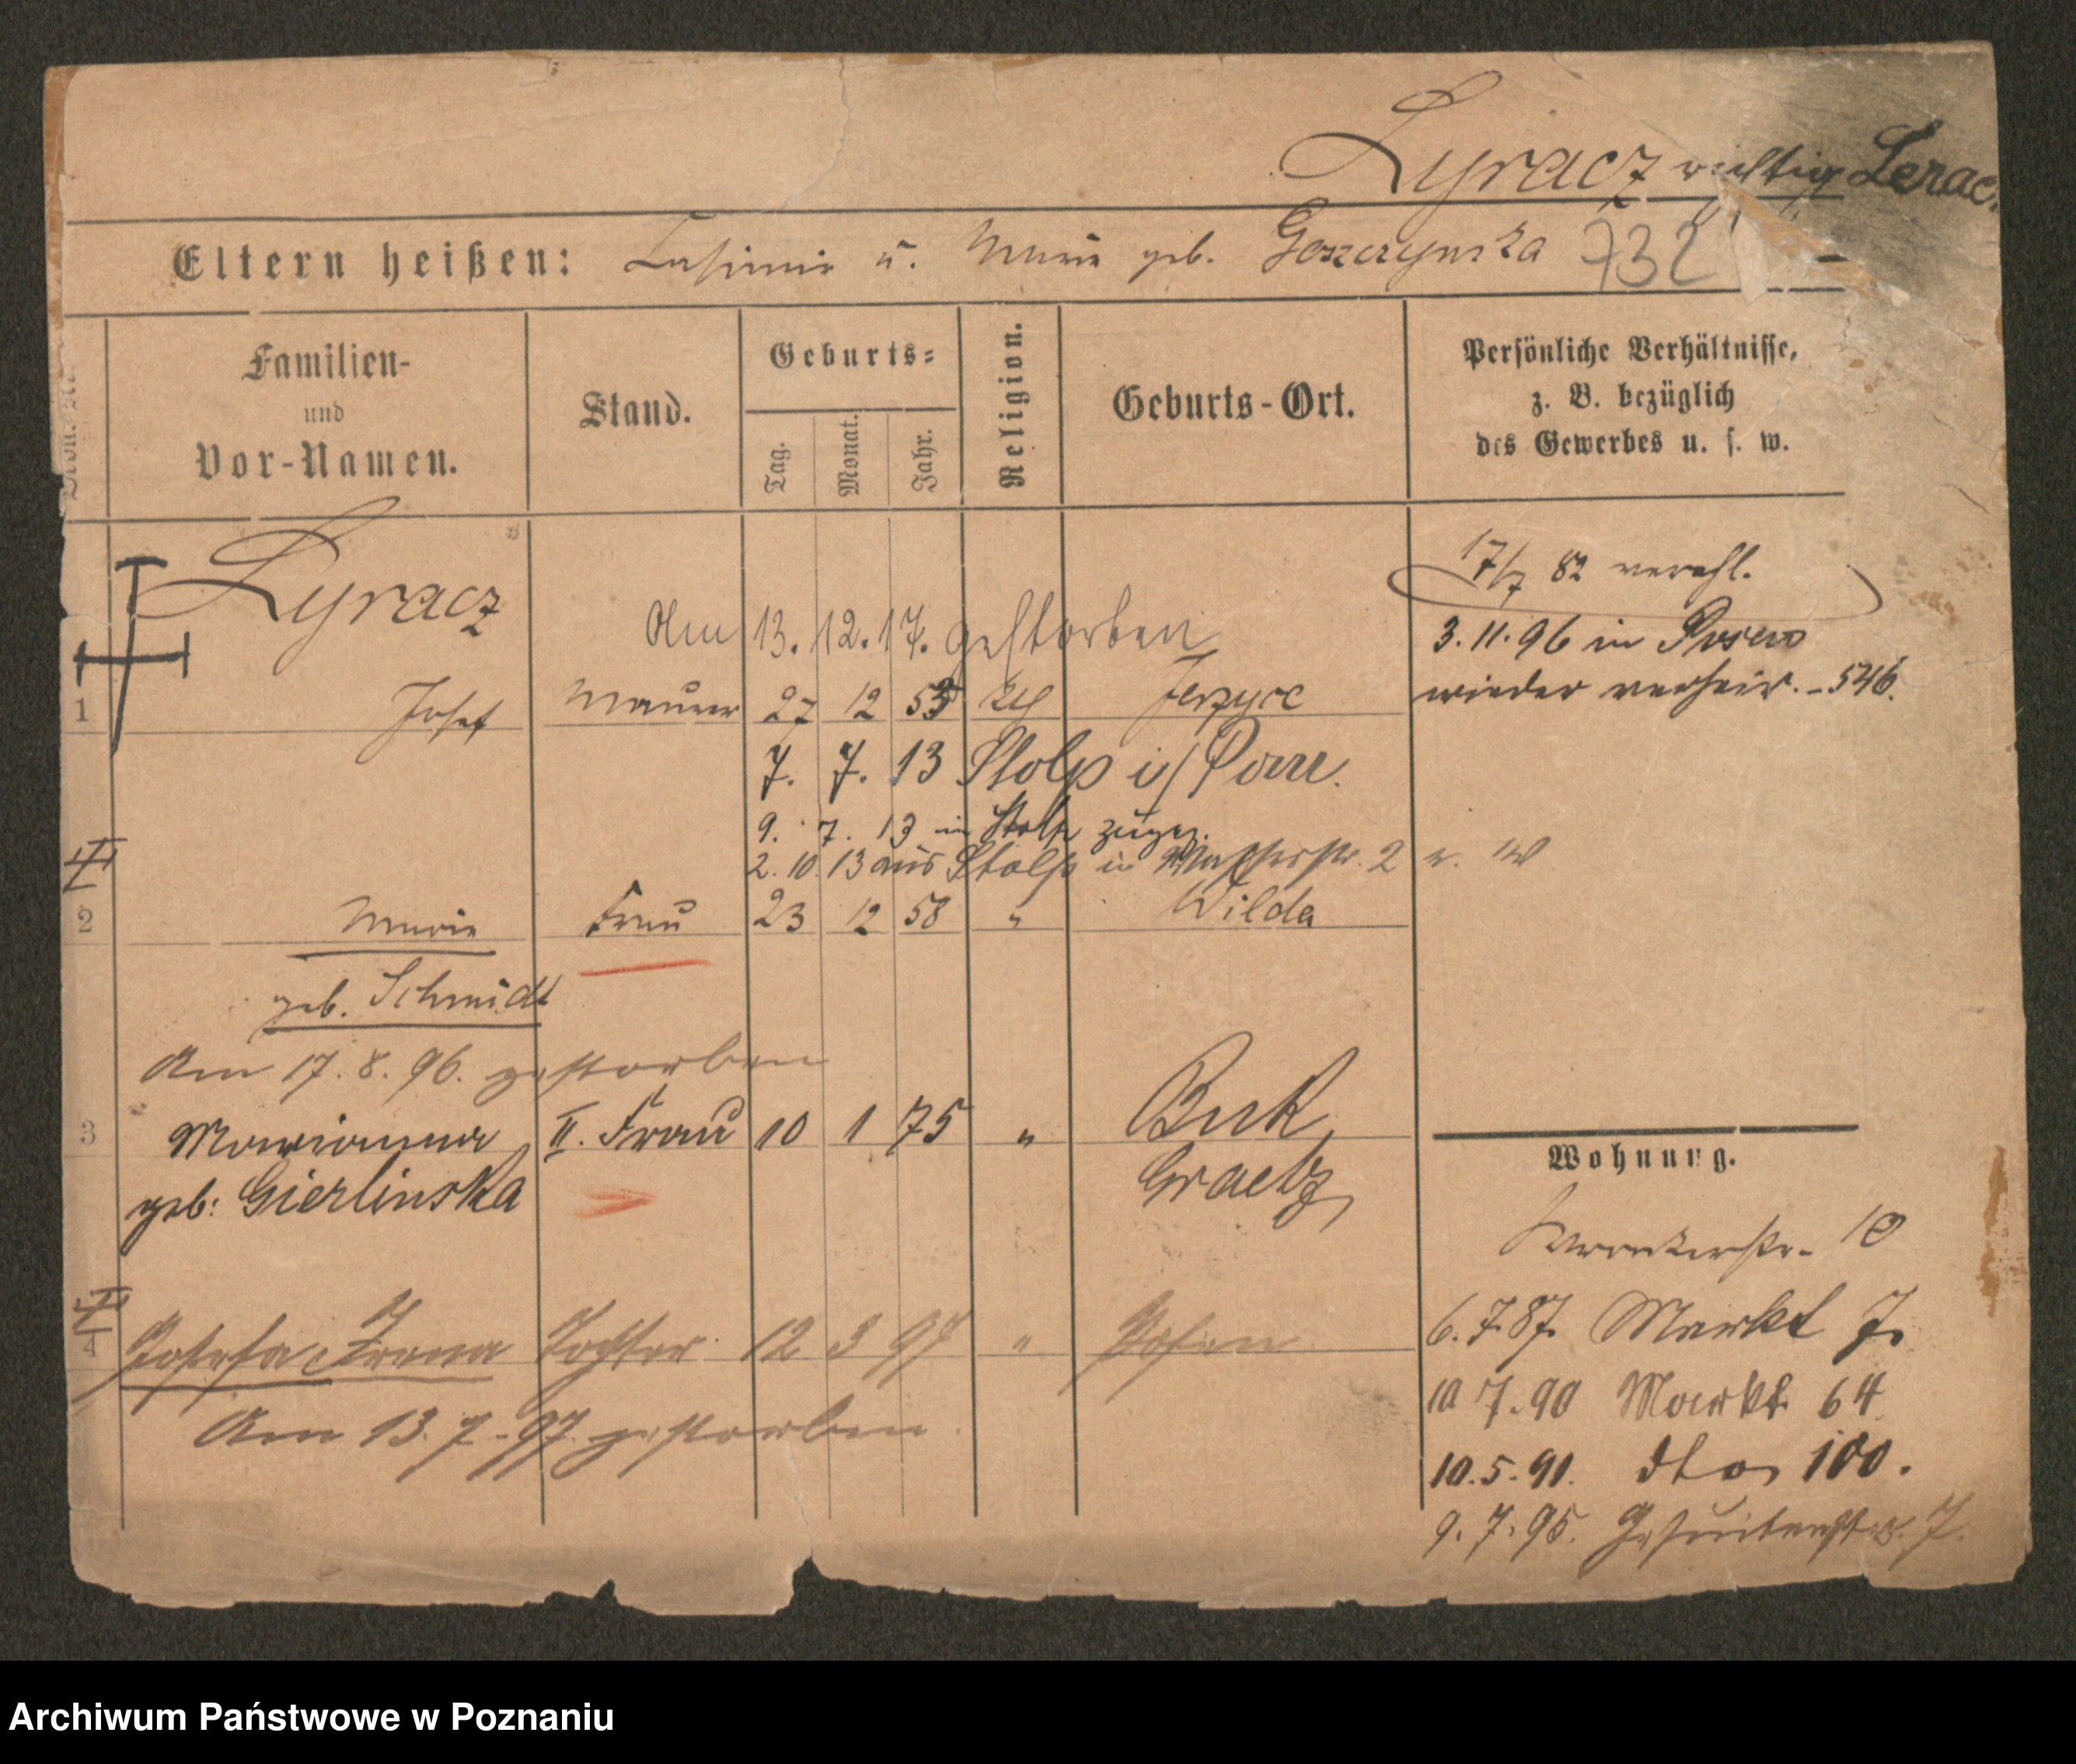 Lyracz richtig Lerac
Eltern heißen: Casimir u. Marie geb. Goszczynska 732
Familien-
und
Vor-Namen.
Stand.
Geburts-
Tag.
Monat.
Jahr.
Religion.
Geburts-Ort.
Persönliche Verhältnisse,
z. B. bezüglich
des Gewerbes u. s. w.
Lyracz
17/7 82 verehl.
Am 13. 12. 17. gestorben
3. 11. 96 in Posen
wieder verheir. - 546.
1 Josef Maurer 27 12 55 Jerzyce
7. 7. 13 Stolp i/Pom.
9. 7. 13 in Stolp zugez.
2. 10. 13 aus Stolp in 2
2 Marie Frau 23 12 58 " Wilda
geb. Schmidt
Am 17. 8. 96. gestorben
3 Marianna II. Frau 10 1 75 " Buk
geb: Gierlinska Graetz
Wohnung.
Wronkerstr. 10
4 Josefa Irena Tochter 12 3 97 " Posen
6. 7. 87. Markt 7.
Am 13. 7. 97. gestorben
10 7. 90 Markt 64
10. 5. 91. dto 100.
9. 7. 95. Jesuitenstr. 7.
Archiwum Państwowe w Poznaniu